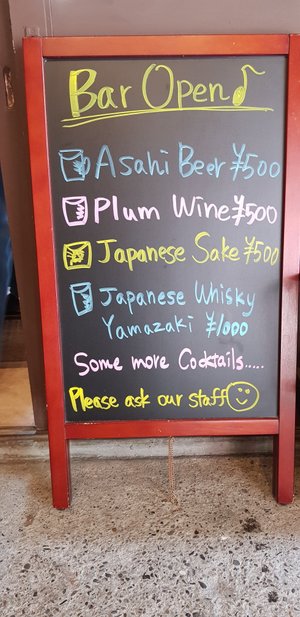 Bar Open♪
Asahi Beer ¥500
Plum Wine ¥500
Japanese Sake ¥500
Japanese Whisky
Yamazaki ¥1000
Some more Cocktails.....
Please ask our staff